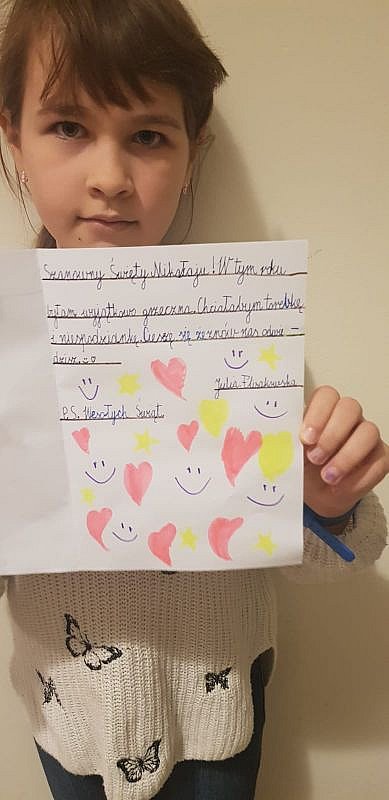 Szanowny Święty Mikołaju! W tym roku
byłam wyjątkowo grzeczna. Chciałabym torebkę
i niespodziankę. Cieszę się że znów nas odwie-
dzisz.
Julia
P.S. Wesołych Świąt.